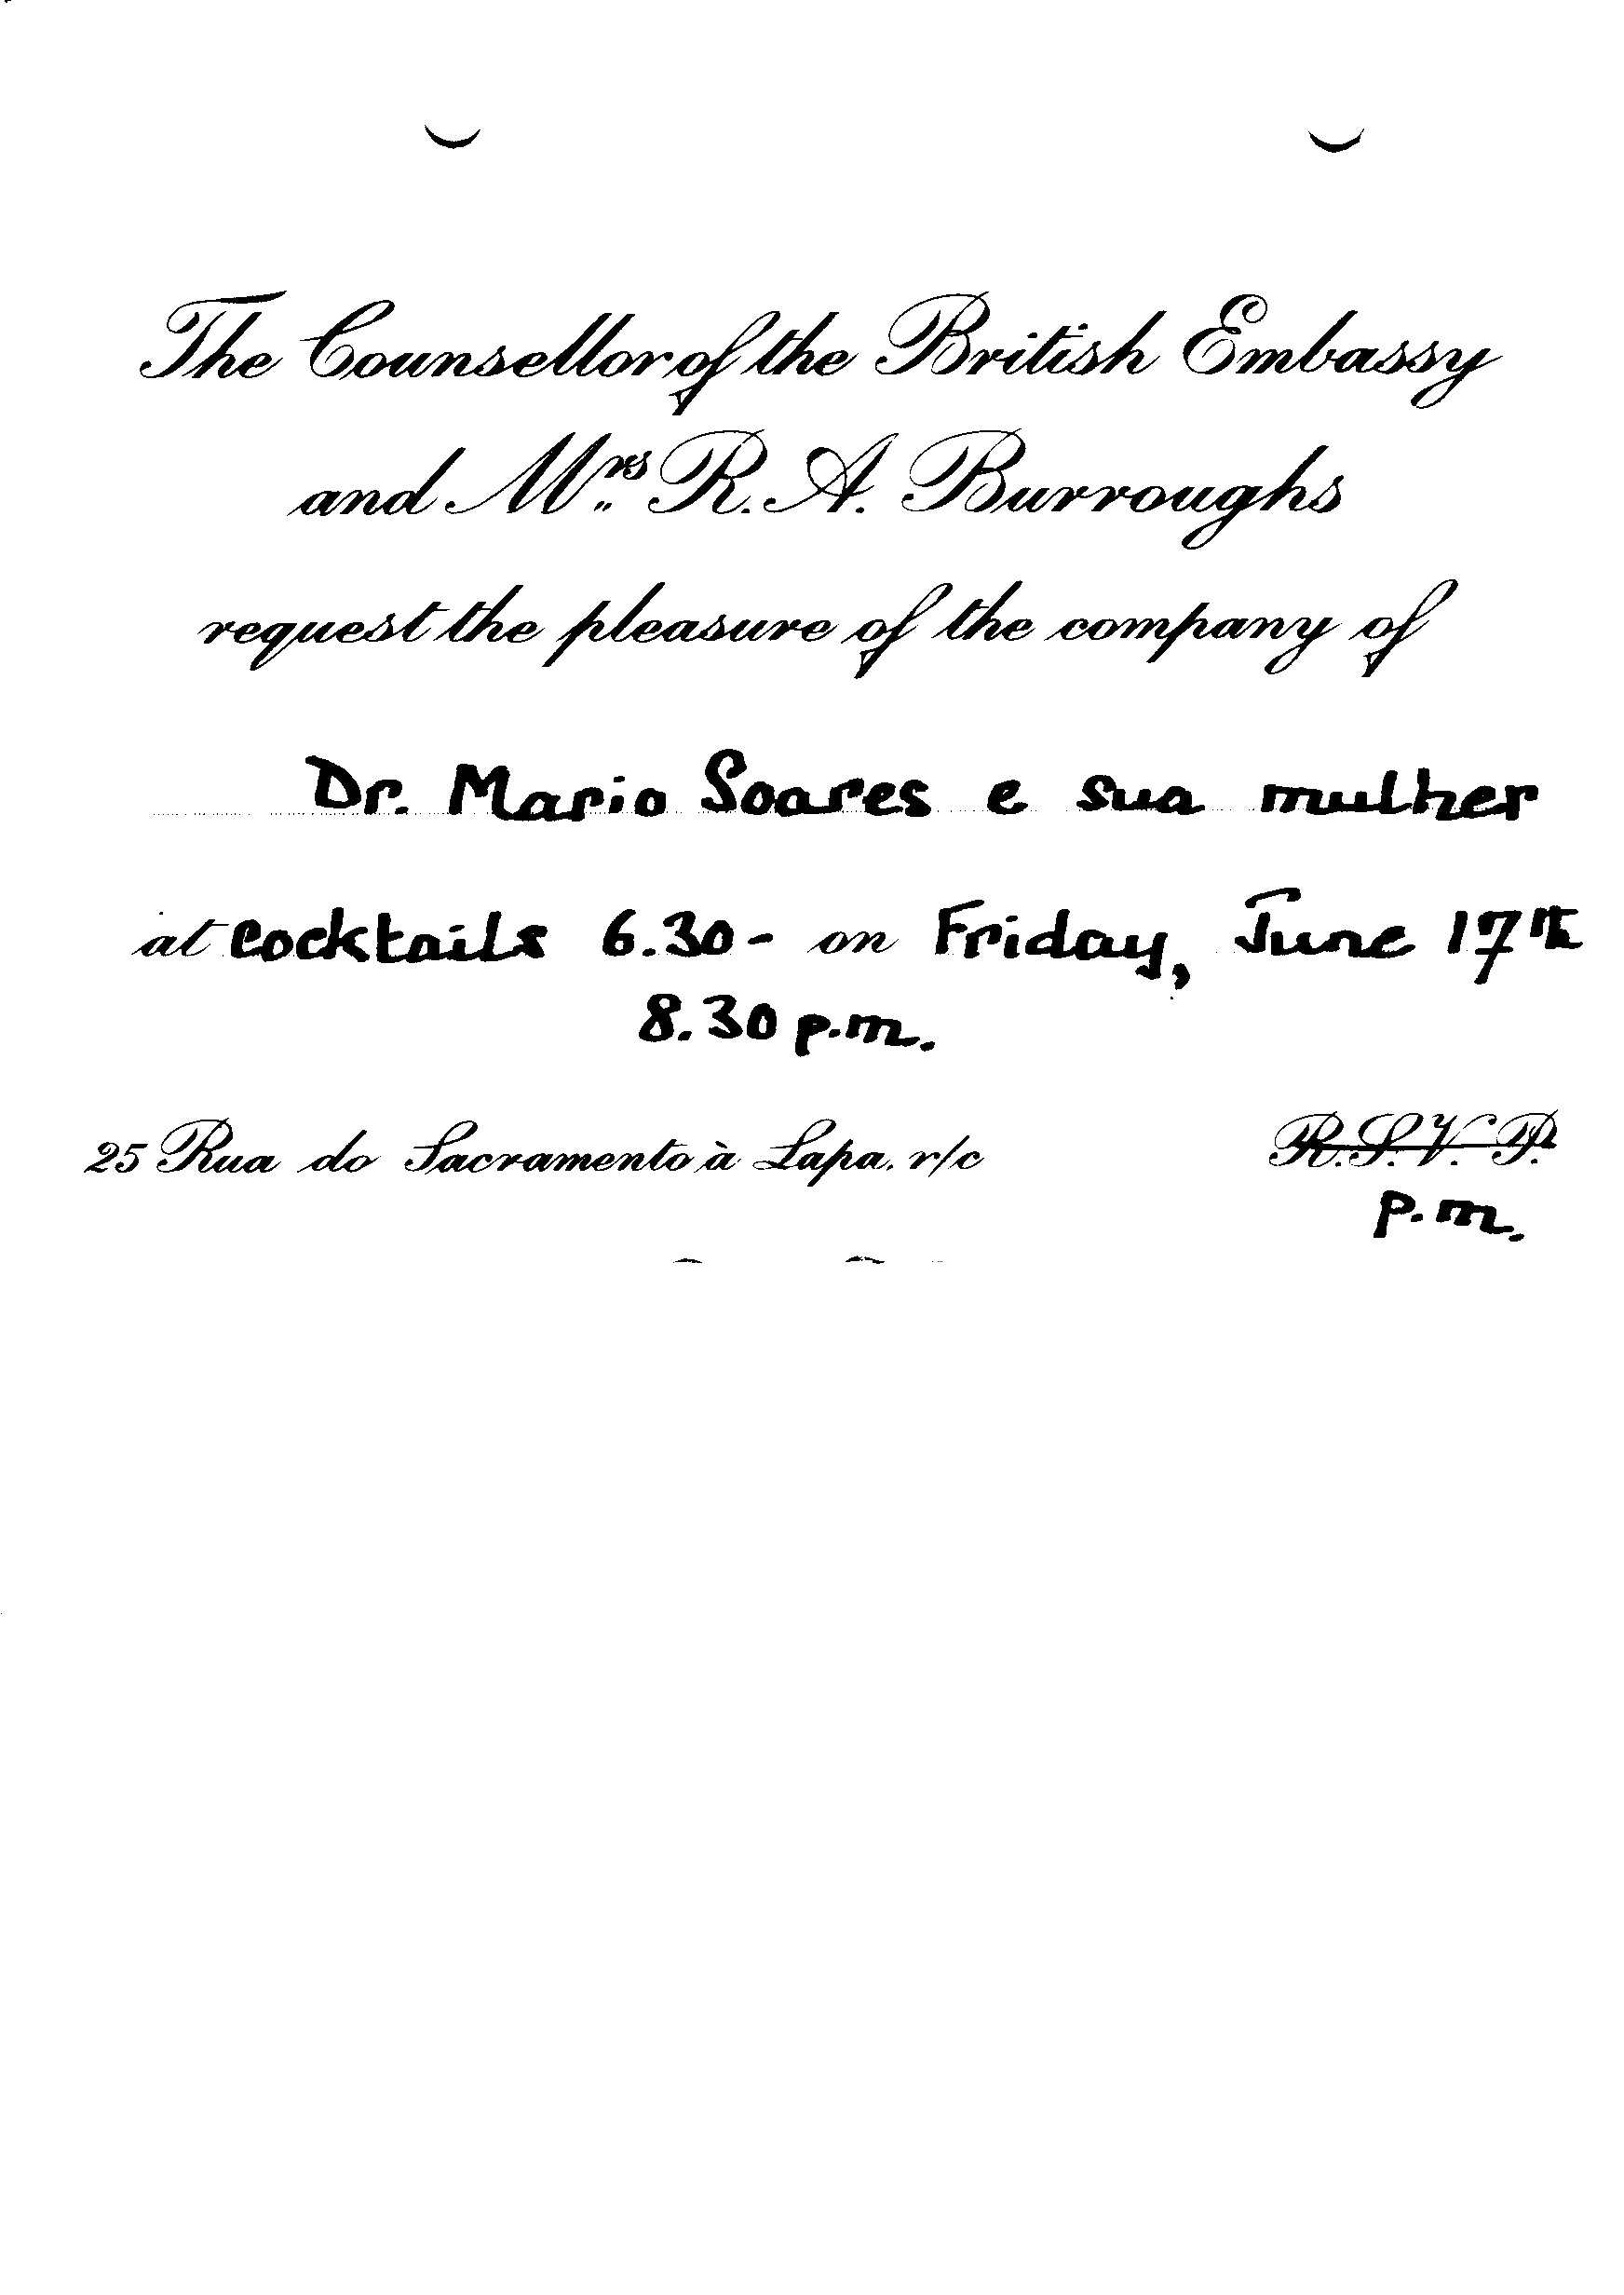 The Counsellor of the British Embassy
and Mrs. R. A. Burroughs
request the pleasure of the company of
Dr. Mario Soares e sua mulher
at cocktails 6.30- on Friday, June 17th
8.30 p.m.
25 Rua do Sacramento à Lapa. r/c R.S.V.P.
p.m.